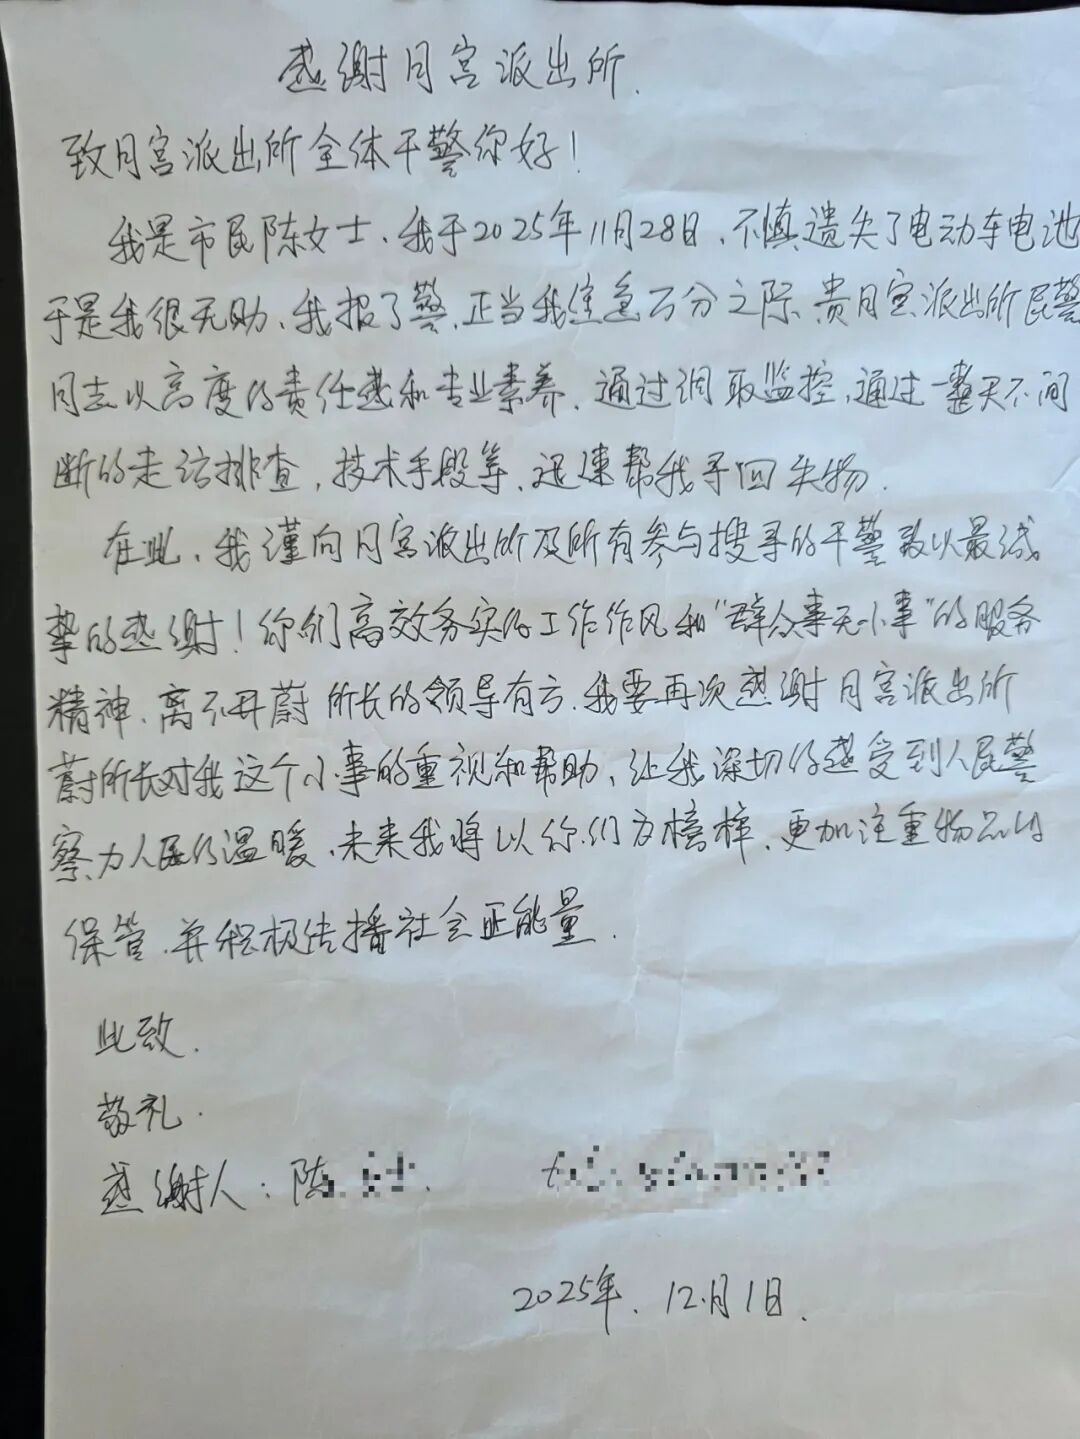 感谢月宫派出所.
致月宫派出所全体干警你好!
我是市民陈女士、我于2025年11月28日、不慎遗失了电动车电池
于是我很无助、我报了警、正当我焦急万分之际、贵月宫派出所民警
同志以高度的责任感和专业素养、通过调取监控,通过一整天不间
断的走访排查,技术手段等、迅速帮我寻回失物.
在此、我谨向月宫派出所及所有参与搜寻的干警致以最诚
挚的感谢!你们高效务实的工作作风和“群众事无小事”的服务
精神、离不开蔚所长的领导有方、我要再次感谢月宫派出所
蔚所长对我这个小事的重视和帮助、让我深切的感受到人民警
察为人民的温暖、未来我将以你们为榜样、更加注重物品的
保管、并积极传播社会正能量.
此致.
敬礼.
感谢人:陈
2025年、12月1日.